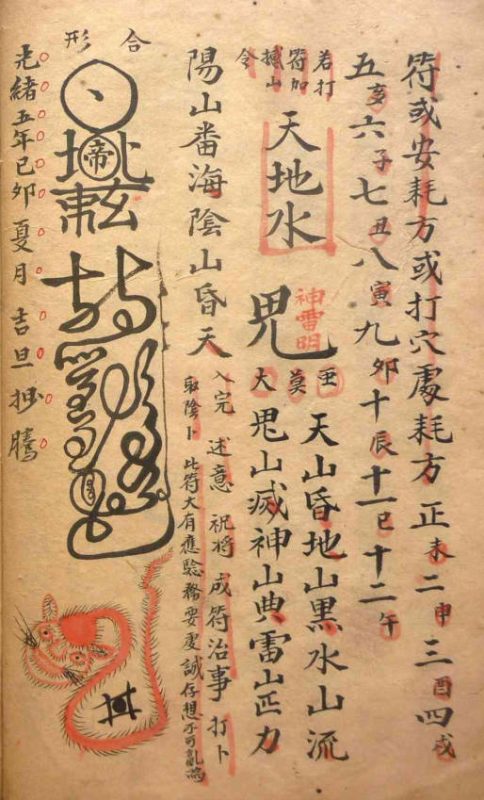 符或安耗方或打穴處耗方正未二申三酉四戌
五亥六子七丑八寅九卯十辰十一巳十二午
若打
符加
山
令
天地水
神雷明
天山昏地山黑水山流
大
莫
山滅神山典雷山
力
陽山番海陰山昏天
入完述意祝將成符治事打卜
取陰卜此符大有應驗務要虔誠存想不可亂為
合形
帝
光緒五年己卯夏月吉旦抄騰